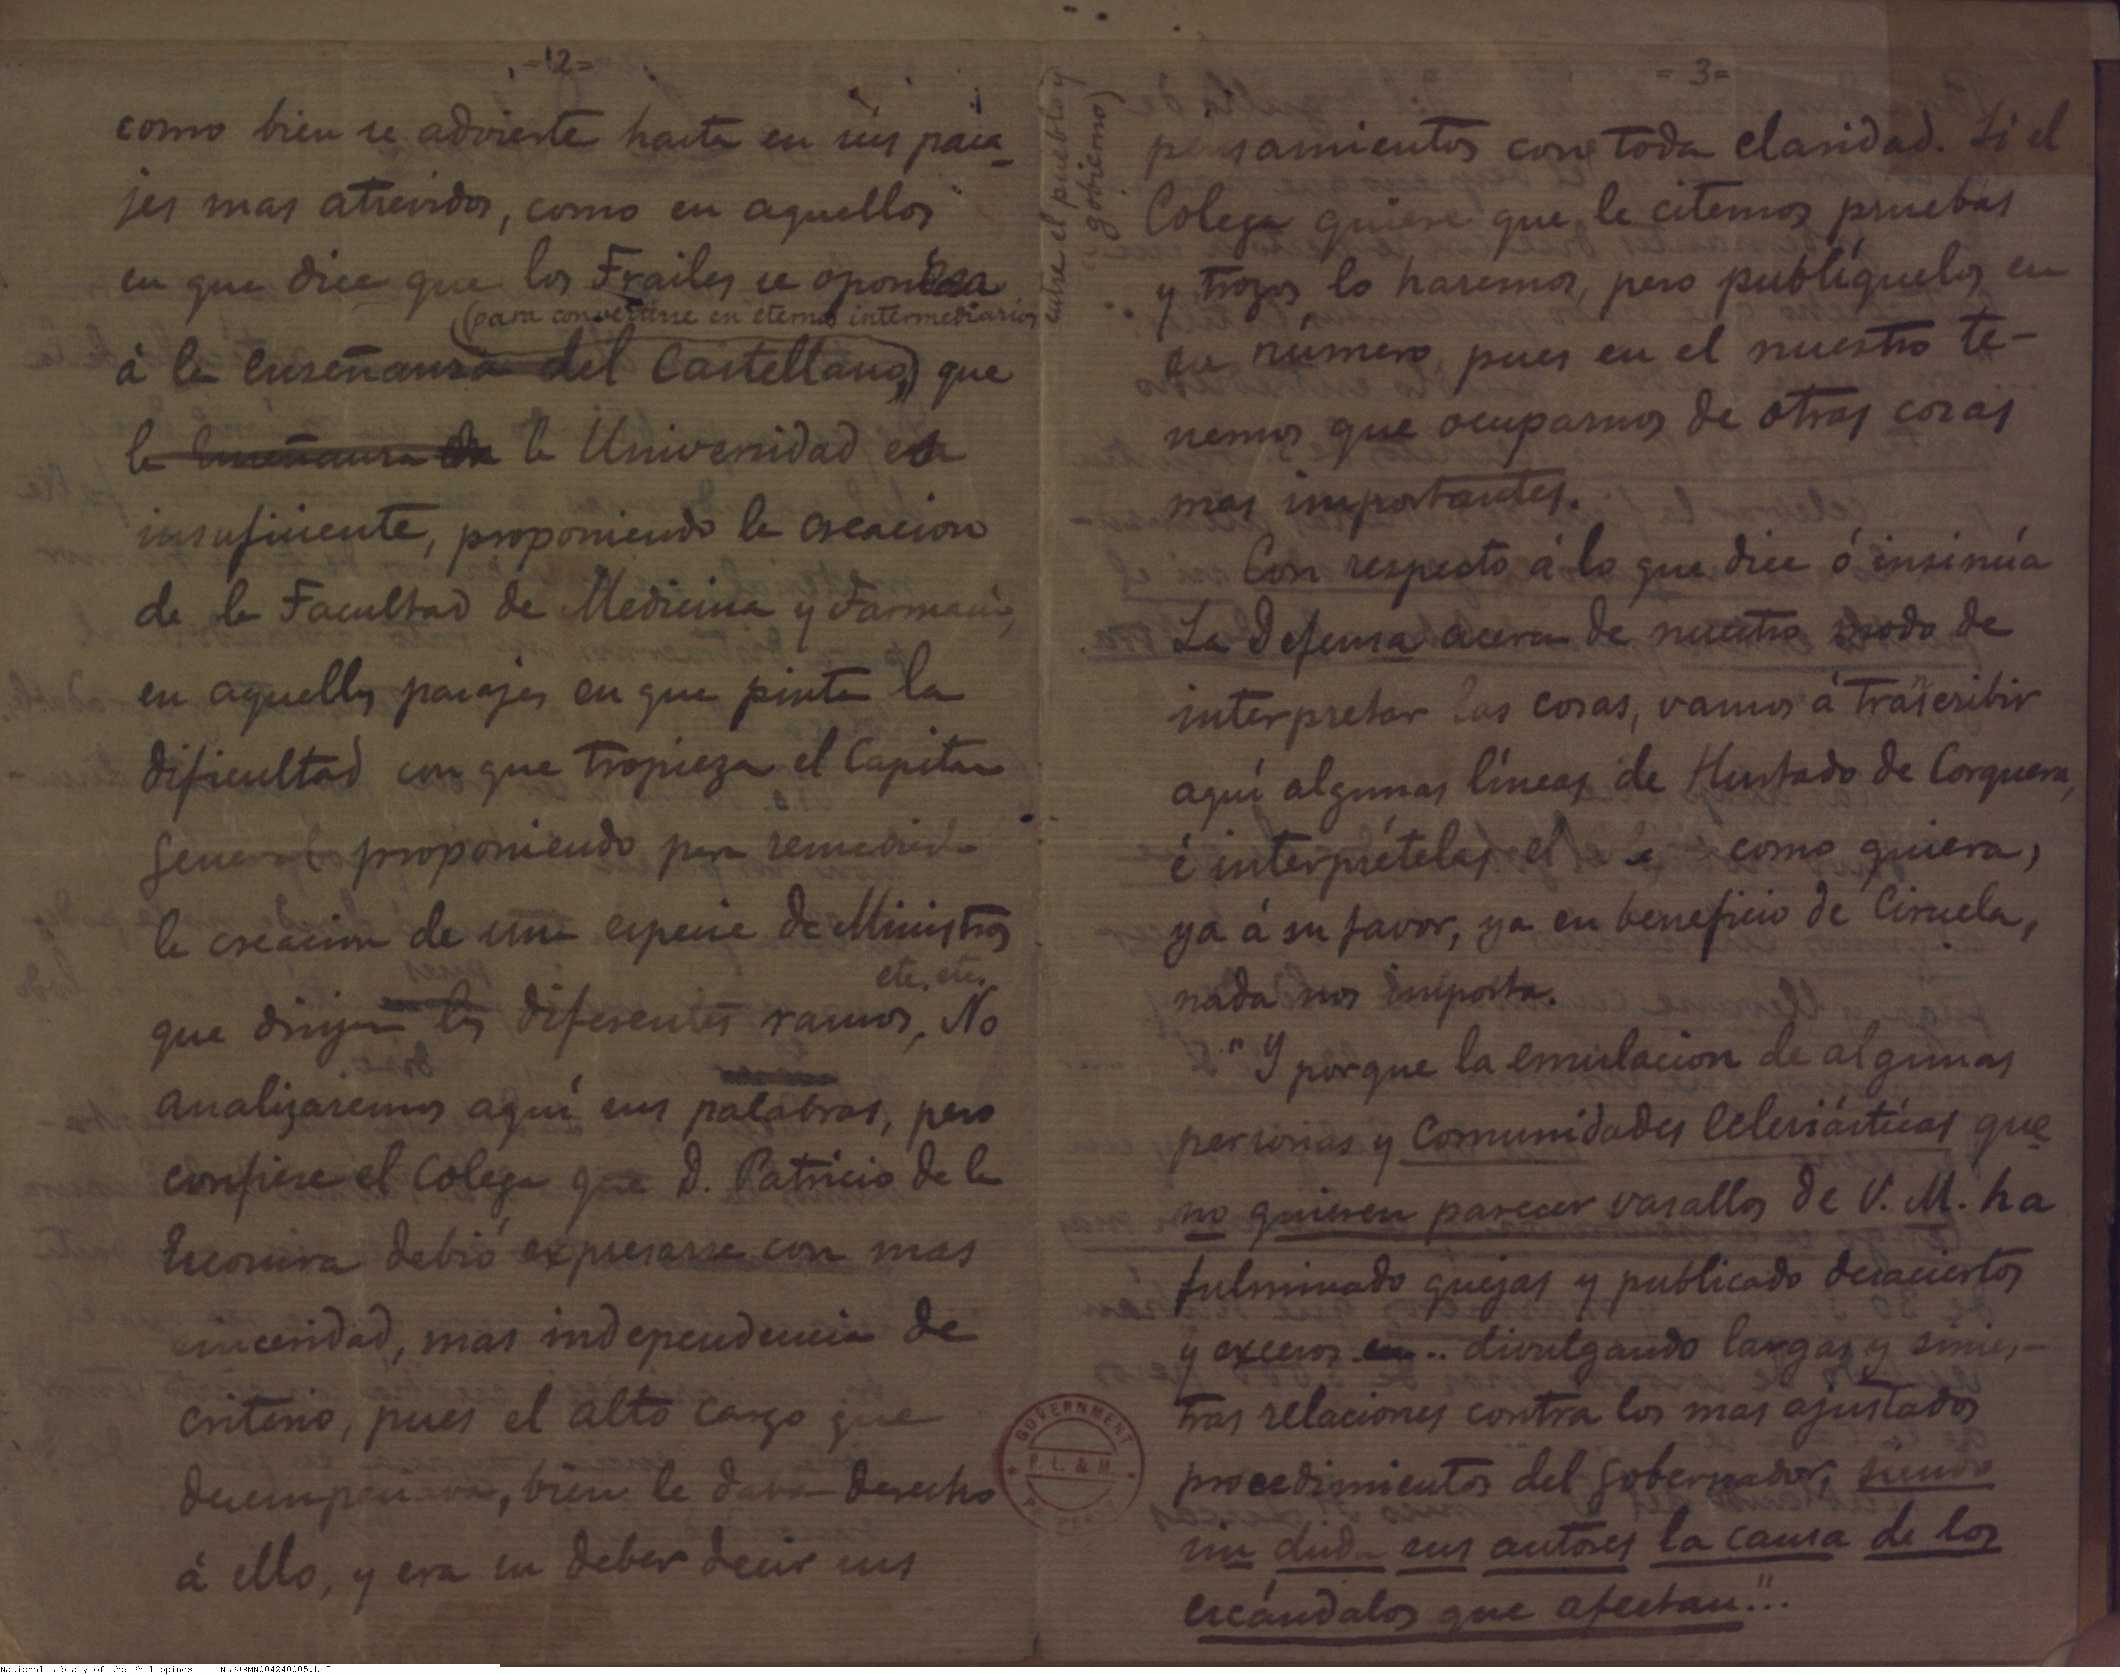 =2=
como bien se advierte hasta en sus pasa-
jes mas atrevidos, como en aquellos
en que dice que los Frailes se oponian
(para convertirse en eternos intermediarios
entre el pueblo y
gobierno)
á la enseñanza del Castellano, que
la enseñanza de la Universidad era
insuficiente, proponiendo la creacion
de la Facultad de Medicina y Farmacia,
en aquellos pasajes en que pinta la
dificultad con que tropieza el Capitan
General proponiendo para remediarla
la creacion de una especie de Ministros
que dirijan los diferentes ramos, etc. etc. No
analizaremos aquí sus palabras, pero
confiese el Colega que D. Patricio de la
Escosura debió expresarse con mas
sinceridad, mas independencia de
criterio, pues el alto cargo que
desempeñava, bien le dava derecho
á ello, y era su deber decir sus
=3=
pensamientos con toda claridad. Si el
Colega quiere que le citemos pruebas
y trozos lo haremos, pero publíquelos en
su número, pues en el nuestro te-
nemos que ocuparnos de otras cosas
mas importantes.
Con respecto á lo que dice ó insinúa
La Defensa acerca de nuestro modo de
interpretar las cosas, vamos á trascribir
aquí algunas líneas de Hurtado de Corquera,
é interprételas el como quiera,
ya á su favor, ya en beneficio de Ciruela,
nada nos importa.
"Y porque la emulacion de algunas
personas y Comunidades Eclesiásticas que
no quieren parecer vasallos de V. M. ha
fulminado quejas y publicado desaciertos
y excesos .. divulgando largas y sinies-
tras relaciones contra los mas ajustados
procedimientos del gobernador, siendo
sin duda sus autores la causa de los
escándalos que afectan"...
GOVERNMENT
P. L. & M.
National Library of the Philippines